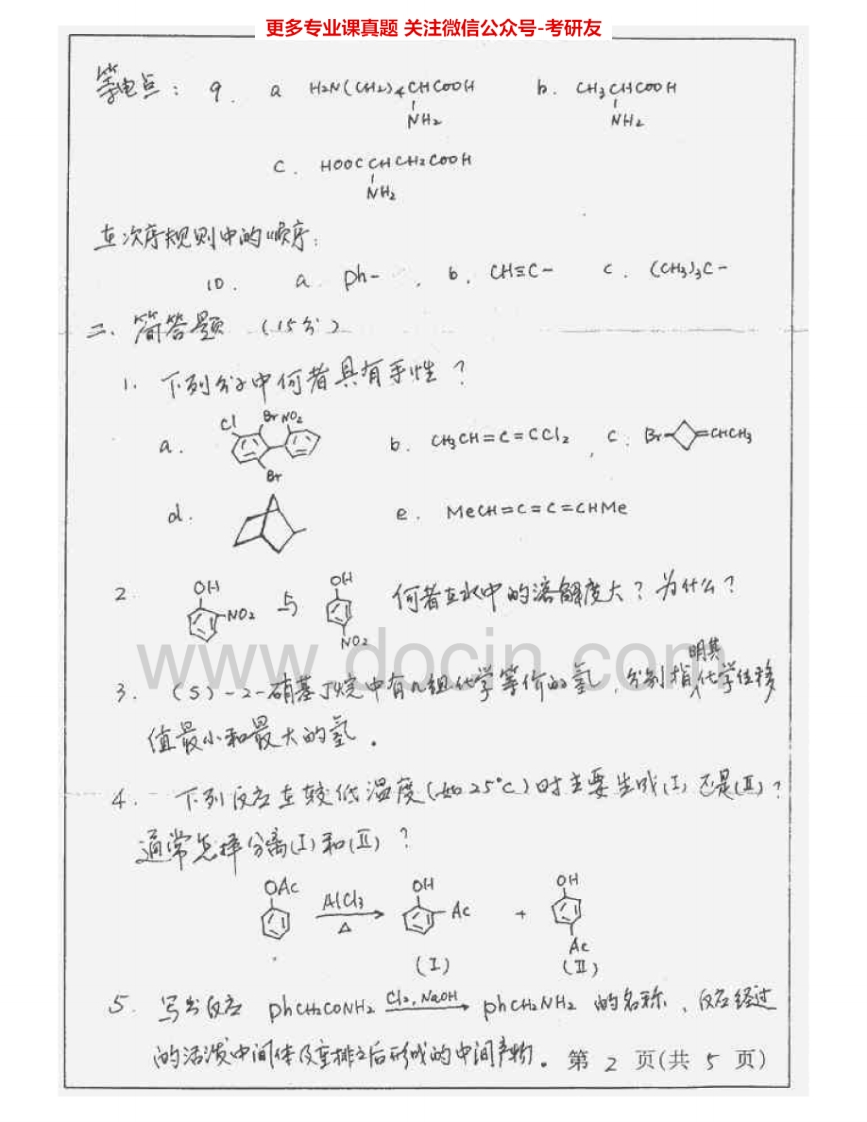 更多专业课真题 关注微信公众号-考研友
等电点: 9. a H2N(CH2)4CHCOOH b. CH3CHCOOH
NH2 NH2
c. HOOCCHCH2COOH
NH2
在次序规则中的顺序:
10. a ph- , b. CH≡C- c. (CH3)3C-
二、简答题 (15分)
1. 下列分子中何者具有手性?
a. Cl Br NO2 Br b. CH3CH=C=CCl2 , c. Br CHCH3
d. e. MeCH=C=C=CHMe
2. OH NO2 与 OH NO2 何者在水中的溶解度大? 为什么?
3. (S)-2-硝基丁烷中有几组化学等价的氢, 分别指明其化学位移
值最小和最大的氢.
4. 下列反应在较低温度(如25°C)时主要生成(I)还是(II)?
通常怎样分离(I)和(II)?
OAc AlCl3 △ OH Ac + OH Ac
(I) (II)
5. 写出反应 phCH2CONH2 Cl2, NaOH phCH2NH2 的名称、反应经过
的活泼中间体及重排之后形成的中间产物.
第 2 页(共 5 页)
www.docin.com